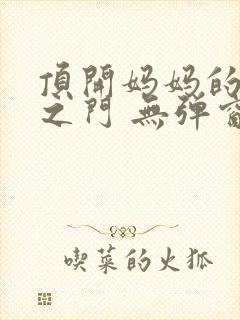 頂開妈妈的
之门 無弹窗
喫菜的火狐